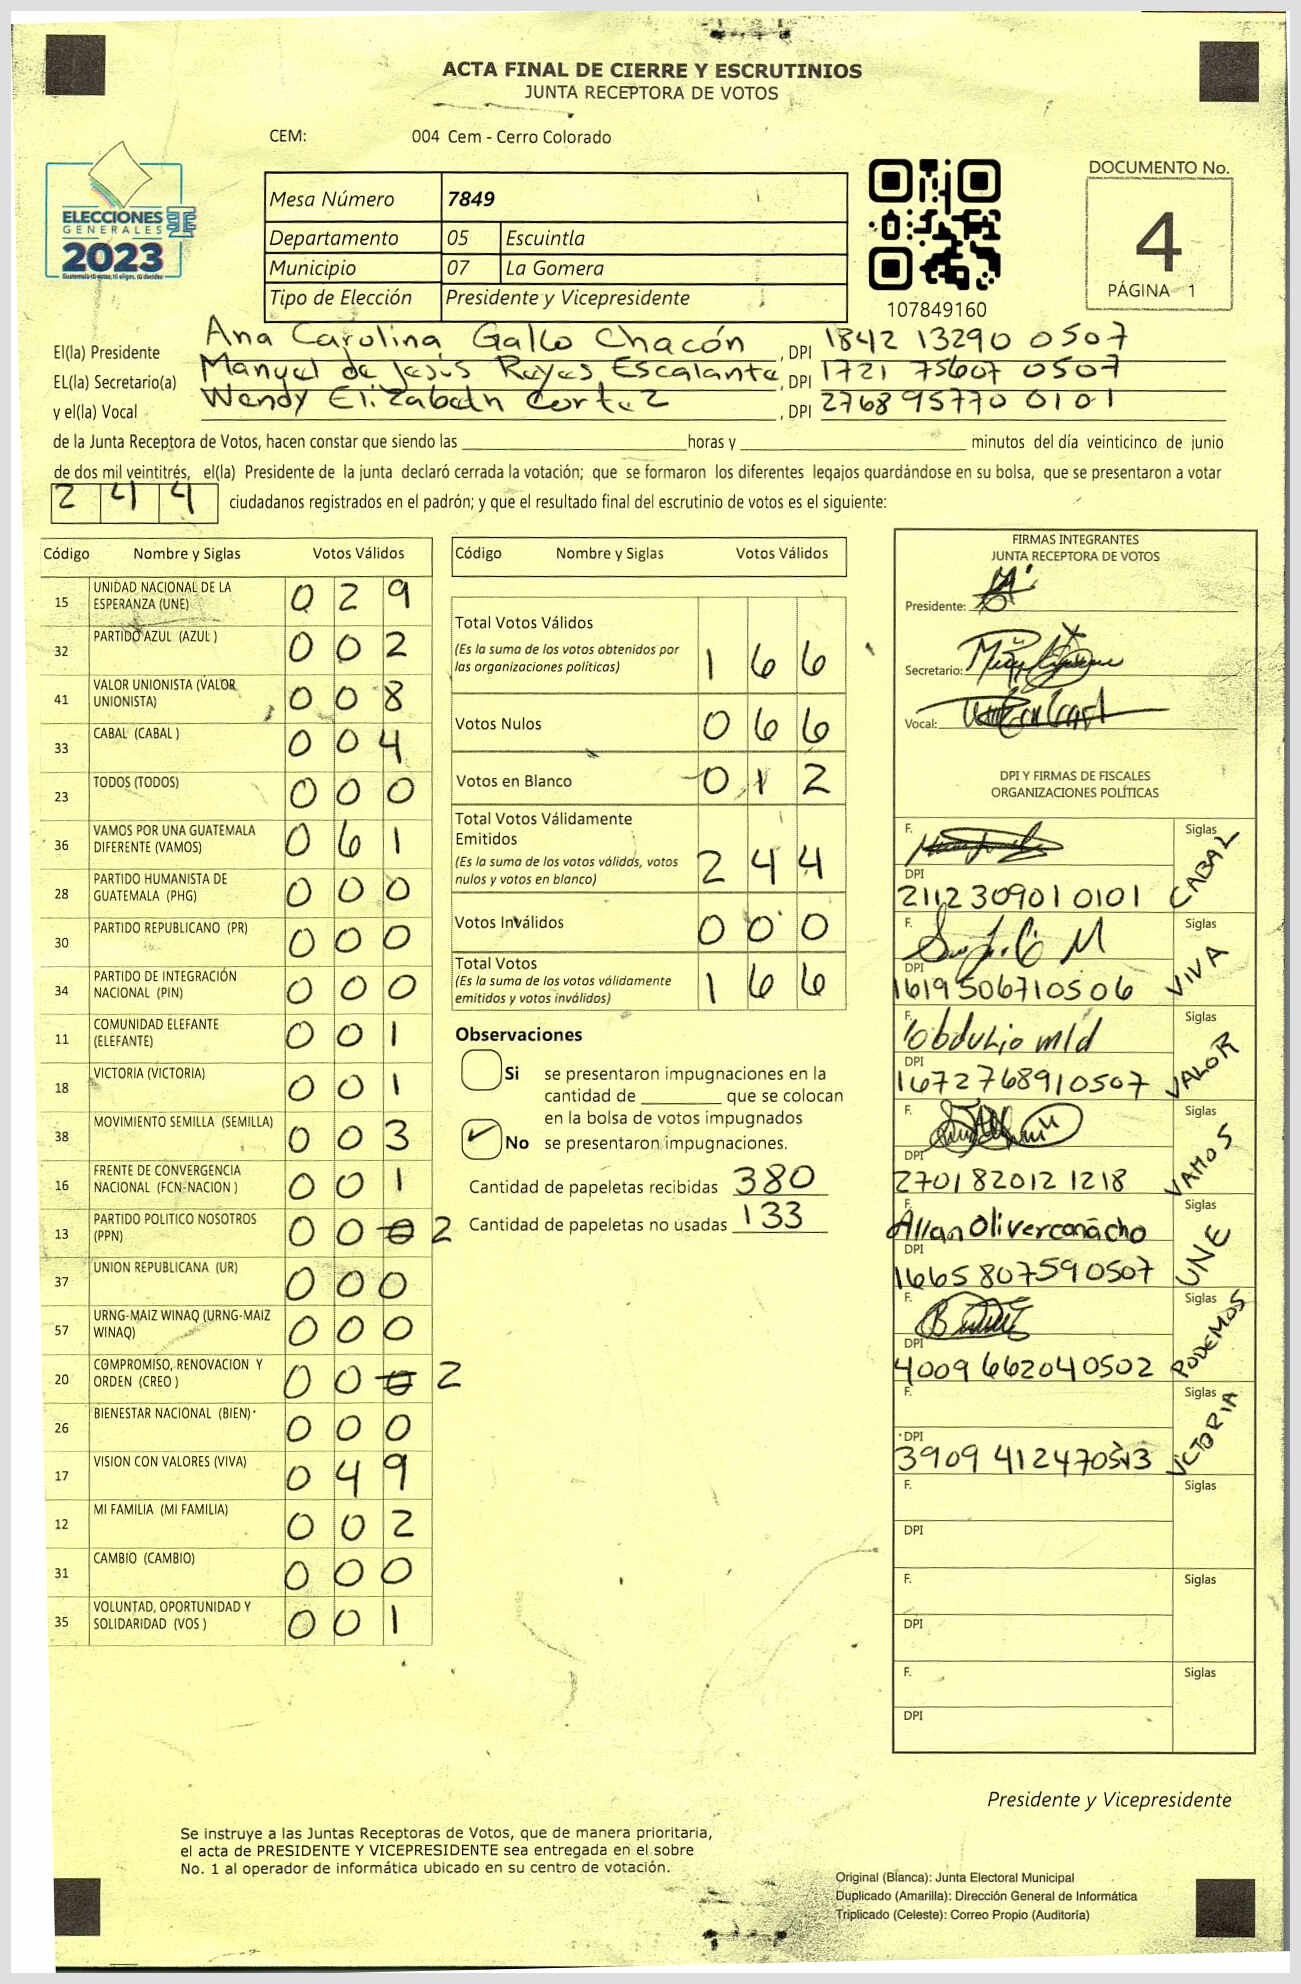 ACTA FINAL DE CIERRE Y ESCRUTINIOS
JUNTA RECEPTORA DE VOTOS
CEM: 004 Cem - Cerro Colorado
ELECCIONES
GENERALES
2023
Guatemala tú votas, tú eliges, tú decides
Mesa Número 7849
Departamento 05 Escuintla
Municipio 07 La Gomera
Tipo de Elección Presidente y Vicepresidente
107849160
DOCUMENTO No.
4
PÁGINA 1
El(la) Presidente Ana Carolina Gallo Chacón , DPI 1842 13290 0507
EL(la) Secretario(a) Manuel de Jesús Reyes Escalante , DPI 1721 75607 0507
y el(la) Vocal Wendy Elizabeth Cortez , DPI 2768 95770 0101
de la Junta Receptora de Votos, hacen constar que siendo las horas y minutos del día veinticinco de junio
de dos mil veintitrés, el(la) Presidente de la junta declaró cerrada la votación; que se formaron los diferentes legajos guardándose en su bolsa, que se presentaron a votar
2 4 4 ciudadanos registrados en el padrón; y que el resultado final del escrutinio de votos es el siguiente:
Código Nombre y Siglas Votos Válidos
15 UNIDAD NACIONAL DE LA ESPERANZA (UNE) 0 2 9
32 PARTIDO AZUL (AZUL ) 0 0 2
41 VALOR UNIONISTA (VALOR UNIONISTA) 0 0 8
33 CABAL (CABAL ) 0 0 4
23 TODOS (TODOS) 0 0 0
36 VAMOS POR UNA GUATEMALA DIFERENTE (VAMOS) 0 6 1
28 PARTIDO HUMANISTA DE GUATEMALA (PHG) 0 0 0
30 PARTIDO REPUBLICANO (PR) 0 0 0
34 PARTIDO DE INTEGRACIÓN NACIONAL (PIN) 0 0 0
11 COMUNIDAD ELEFANTE (ELEFANTE) 0 0 1
18 VICTORIA (VICTORIA) 0 0 1
38 MOVIMIENTO SEMILLA (SEMILLA) 0 0 3
16 FRENTE DE CONVERGENCIA NACIONAL (FCN-NACION ) 0 0 1
13 PARTIDO POLITICO NOSOTROS (PPN) 0 0 0 2
37 UNION REPUBLICANA (UR) 0 0 0
57 URNG-MAIZ WINAQ (URNG-MAIZ WINAQ) 0 0 0
20 COMPROMISO, RENOVACION Y ORDEN (CREO ) 0 0 0 2
26 BIENESTAR NACIONAL (BIEN) 0 0 0
17 VISION CON VALORES (VIVA) 0 4 9
12 MI FAMILIA (MI FAMILIA) 0 0 2
31 CAMBIO (CAMBIO) 0 0 0
35 VOLUNTAD, OPORTUNIDAD Y SOLIDARIDAD (VOS ) 0 0 1
Código Nombre y Siglas Votos Válidos
Total Votos Válidos
(Es la suma de los votos obtenidos por
las organizaciones políticas) 1 6 6
Votos Nulos 0 6 6
Votos en Blanco 0 1 2
Total Votos Válidamente
Emitidos
(Es la suma de los votos válidos, votos
nulos y votos en blanco) 2 4 4
Votos Inválidos 0 0 0
Total Votos
(Es la suma de los votos válidamente
emitidos y votos inválidos) 1 6 6
Observaciones
Si se presentaron impugnaciones en la
cantidad de que se colocan
en la bolsa de votos impugnados
No se presentaron impugnaciones.
Cantidad de papeletas recibidas 380
Cantidad de papeletas no usadas 133
FIRMAS INTEGRANTES
JUNTA RECEPTORA DE VOTOS
Presidente:
Secretario:
Vocal:
DPI Y FIRMAS DE FISCALES
ORGANIZACIONES POLÍTICAS
F. Siglas CABAL
DPI
2112 30901 0101
F. Siglas VIVA
DPI
1619506710506
F. Obdulio mld Siglas VALOR
DPI
1672768910507
F. Siglas VAMOS
DPI
2701 82012 1218
F. Allan Oliver Siglas UNE
DPI
1665 807590507
F. Siglas PODEMOS
DPI
4009 662040502
F. Siglas VICTORIA
DPI
3909 41247
F. Siglas
DPI
F. Siglas
DPI
F. Siglas
DPI
Presidente y Vicepresidente
Se instruye a las Juntas Receptoras de Votos, que de manera prioritaria,
el acta de PRESIDENTE Y VICEPRESIDENTE sea entregada en el sobre
No. 1 al operador de informática ubicado en su centro de votación.
Original (Blanca): Junta Electoral Municipal
Duplicado (Amarilla): Dirección General de Informática
Triplicado (Celeste): Correo Propio (Auditoría)